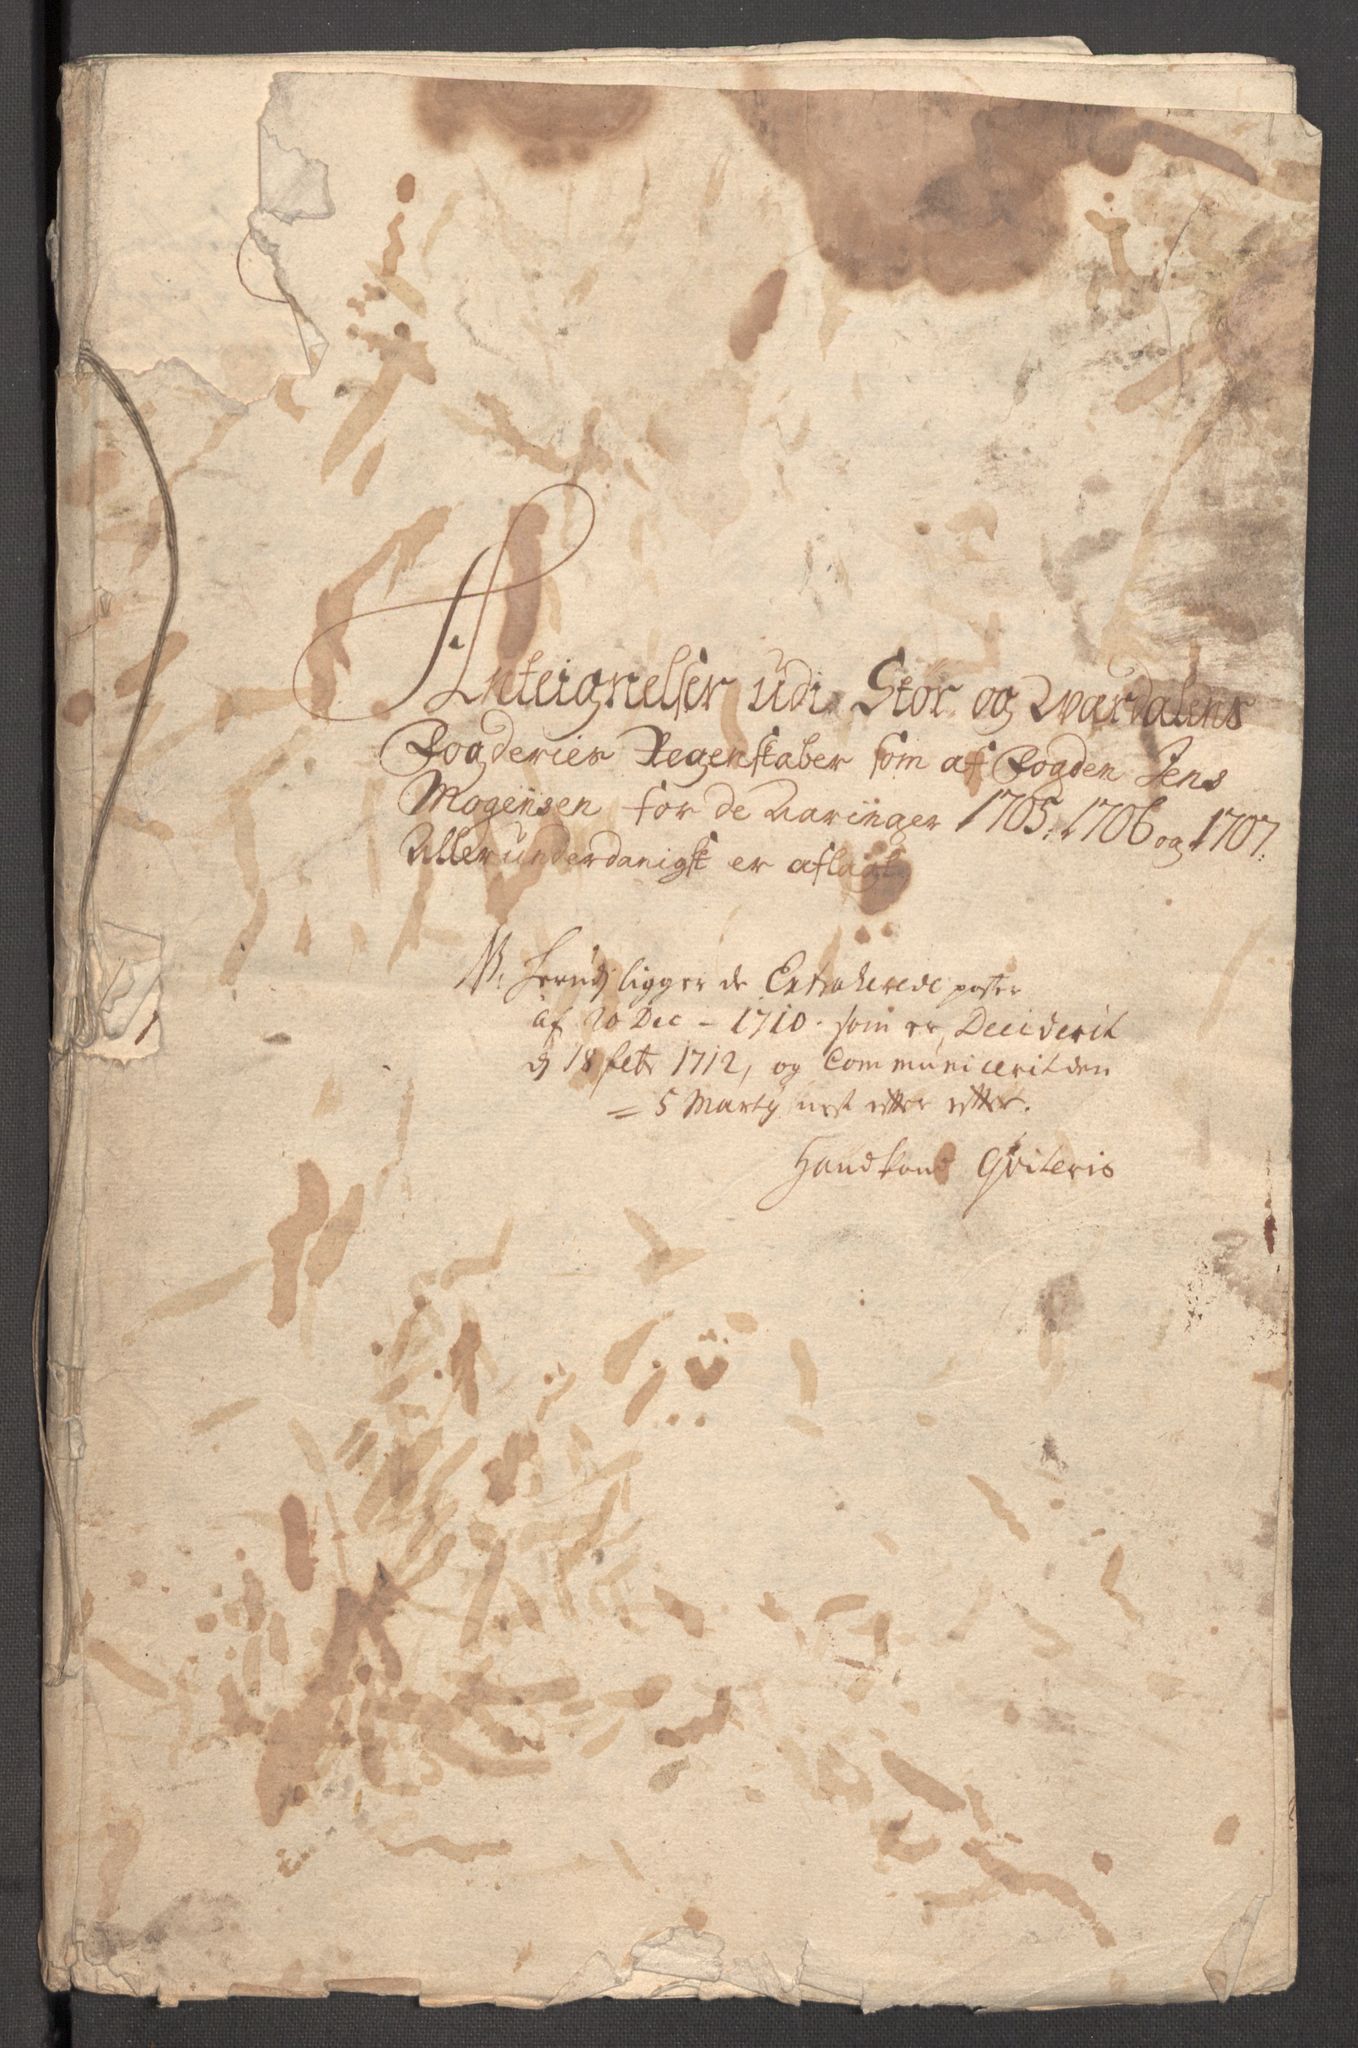 Anteignelser udi Stör og wardalens
Fogderies Regenskaber som af Fogden Jens
Mogensen for de aaringer 1705, 1706 og 1707.
Allerunderdanigst er aflagt
NB. herudj ligger de Extraherede poster
af 20 Dec - 1710. som er Deciderit
dj 18 febr 1712, og Communicerit den
= 5 Marty nest efter efter.
Qviteris